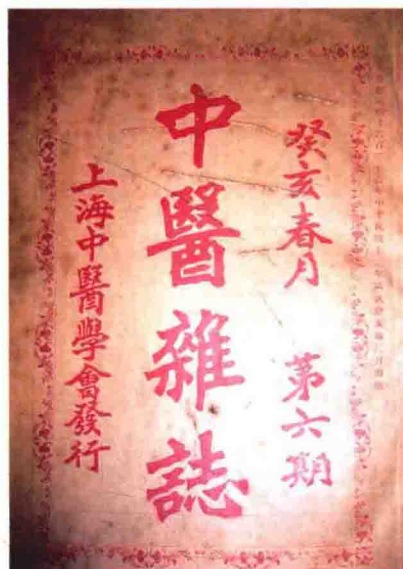 癸亥春月 第六期
中醫雜誌
上海中醫學會發行